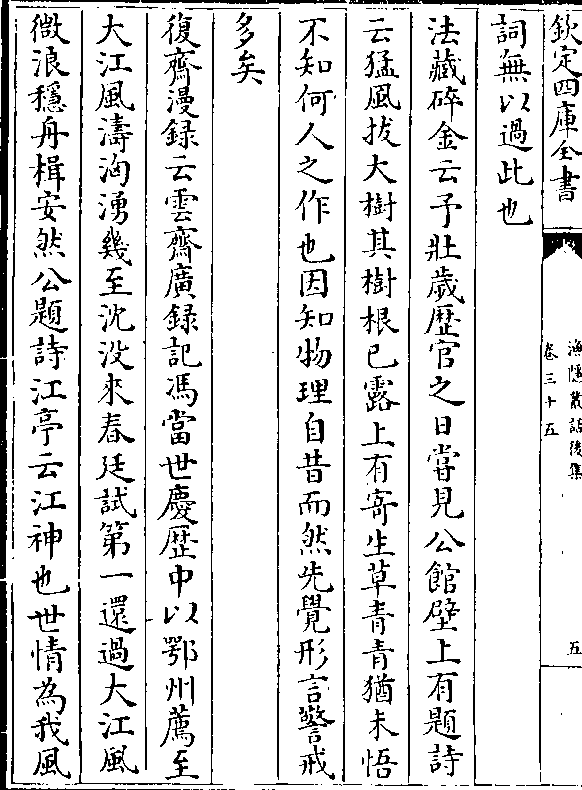 欽定四庫全書
漁隱叢話後集
卷三十五
五
詞無以過此也
法藏碎金云予壯歲歷官之日嘗見公館壁上有題詩
云猛風拔大樹其樹根已露上有寄生草青青猶未悟
不知何人之作也因知物理自昔而然先覺形言警戒
多矣
復齋漫録云雲齋廣録記馮當世慶歴中以鄂州薦至
大江風濤洶湧幾至沈没來春廷試第一還過大江風
微浪穩舟楫安然公題詩江亭云江神也世情為我風